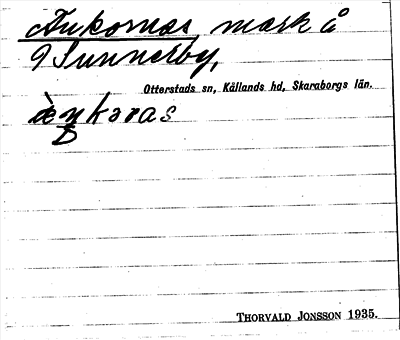 Ankornas mark å
Sunnerby,
Otterstads sn, Kållands hd, Skaraborgs län.
THORVALD JONSSON 1935.